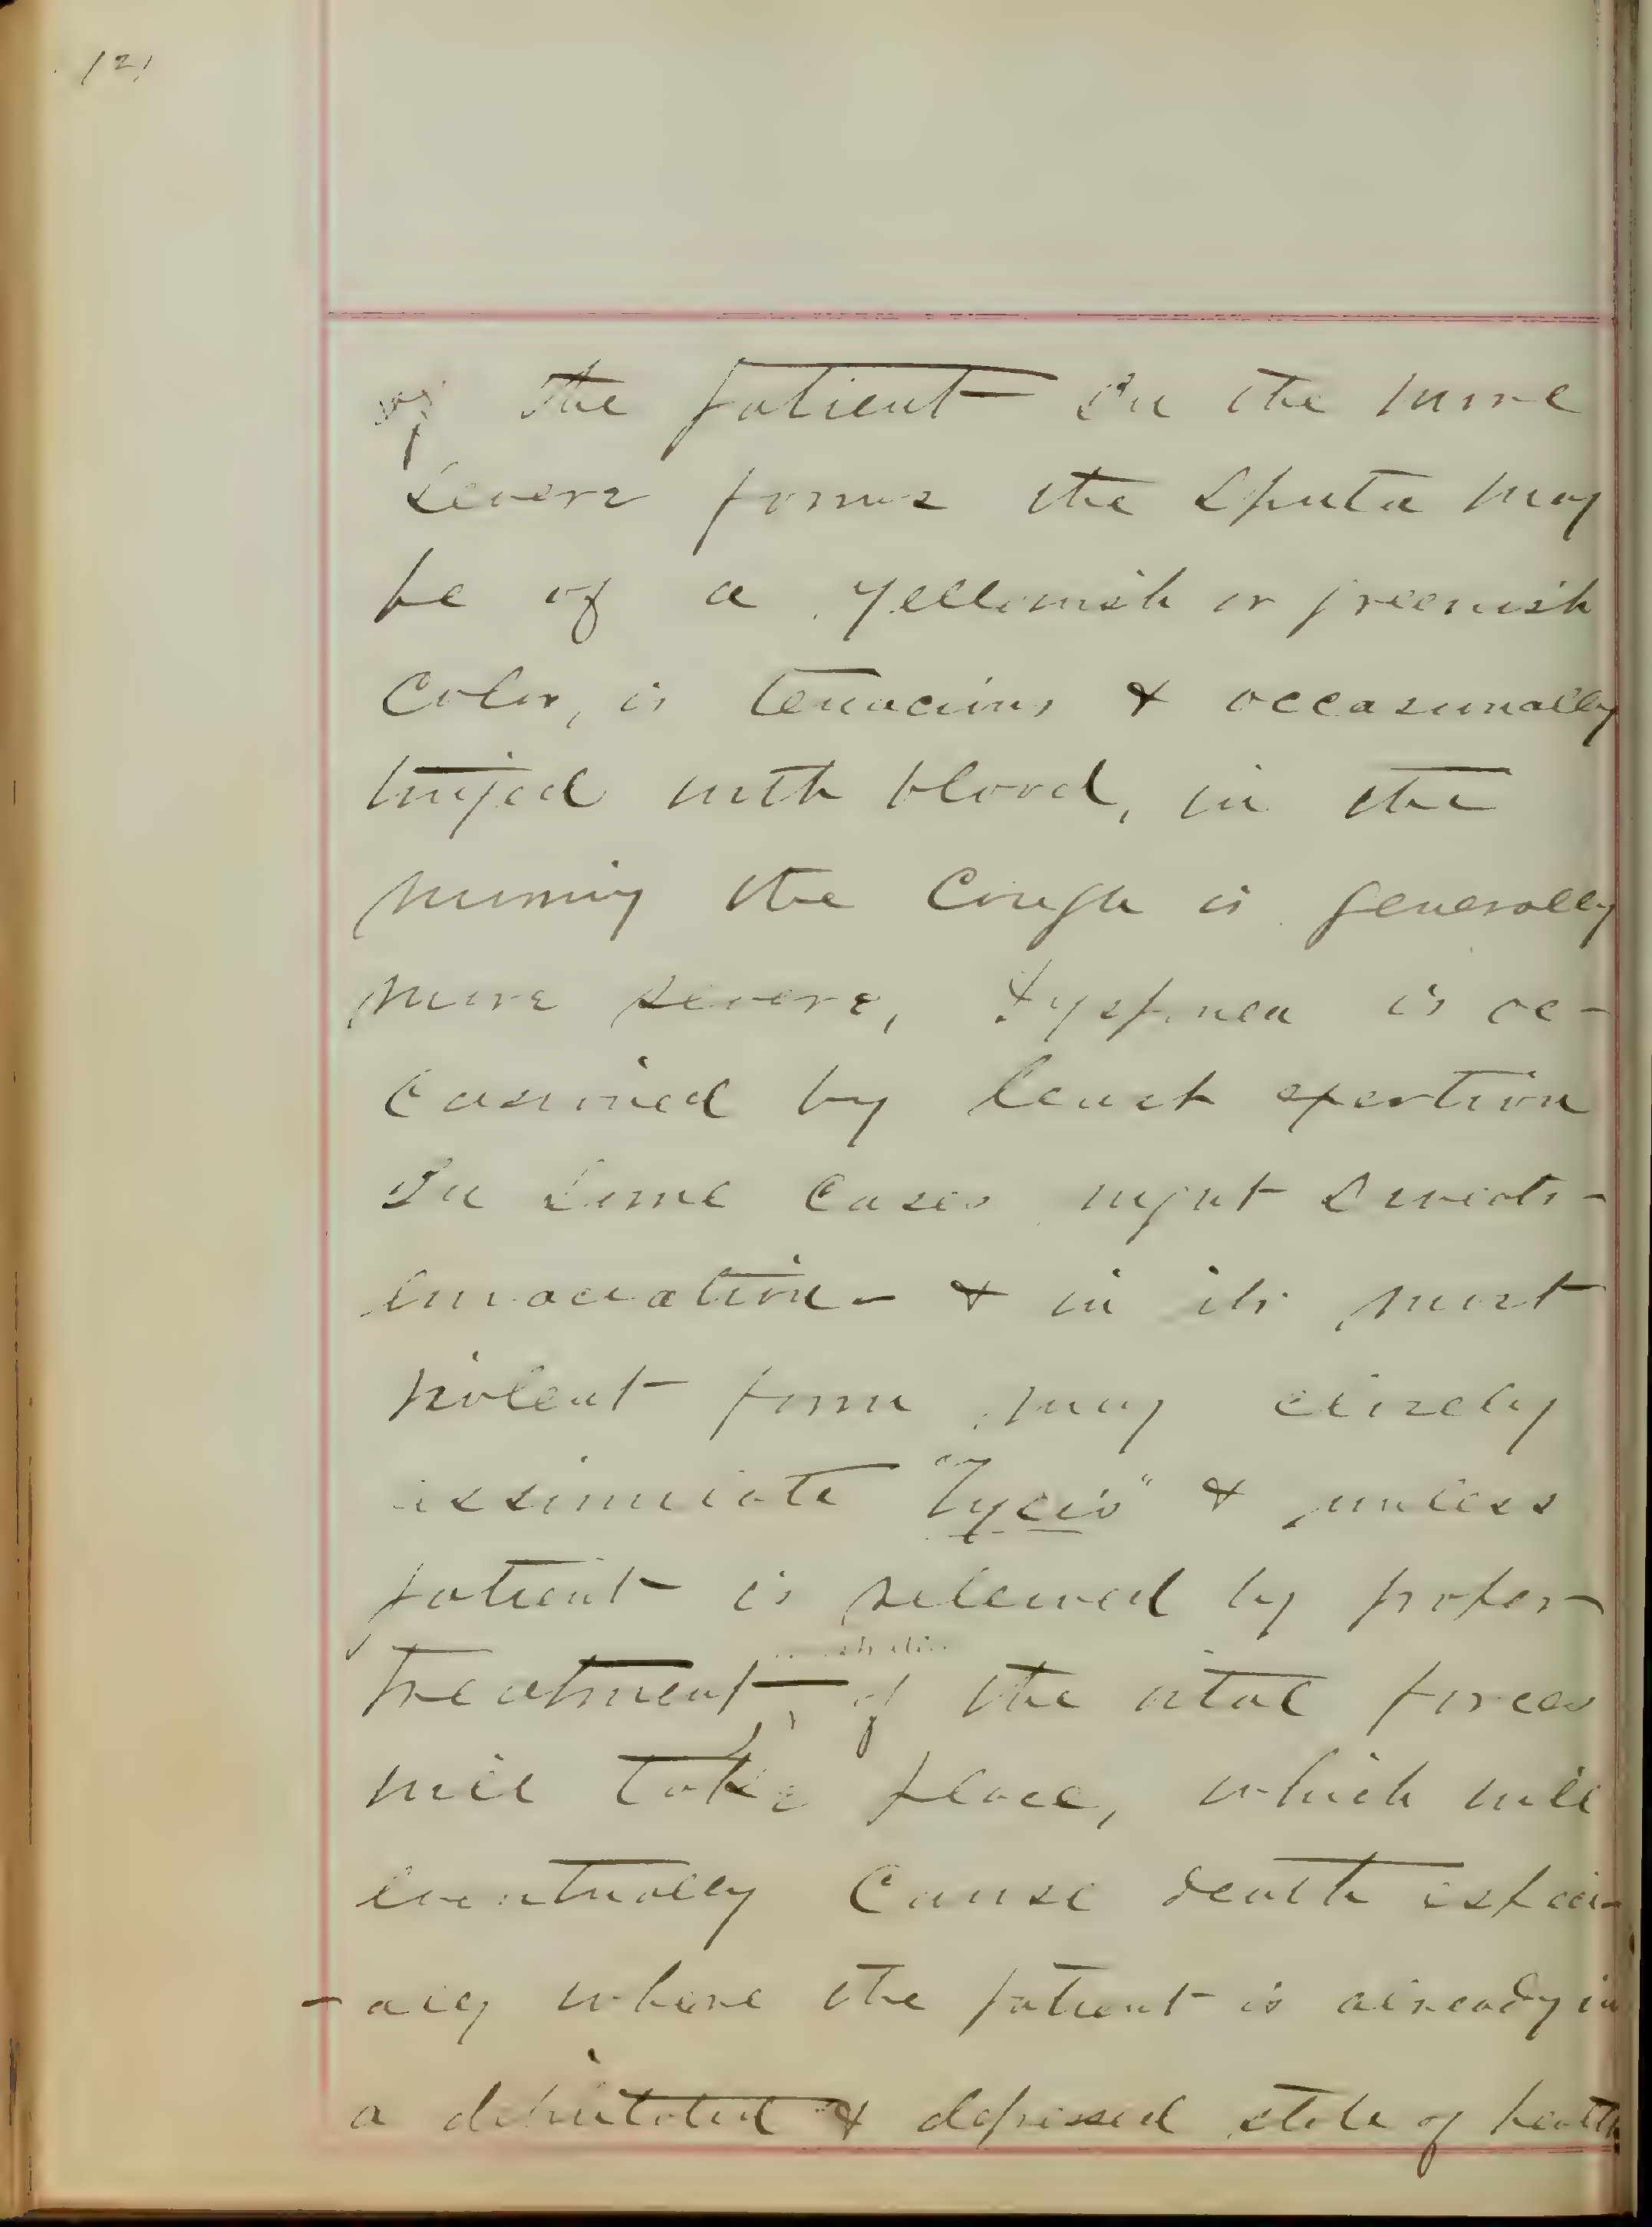 121
of the patient In the more
severe forms the sputa may
be of a yellowish or greenish
color, is tenacious & occasionally
tinged with blood, in the
morning the cough is generally
more severe, dyspnea is oc-
casioned by least exertion
In some cases night sweats -
emaciation - & in its most
violent form may closely
assimilate & unless
patient is relieved by proper
treatment, of the vital forces
will take place, which will
eventually cause death especi-
-ally where the patient is already in
a debilitated & depressed state of health